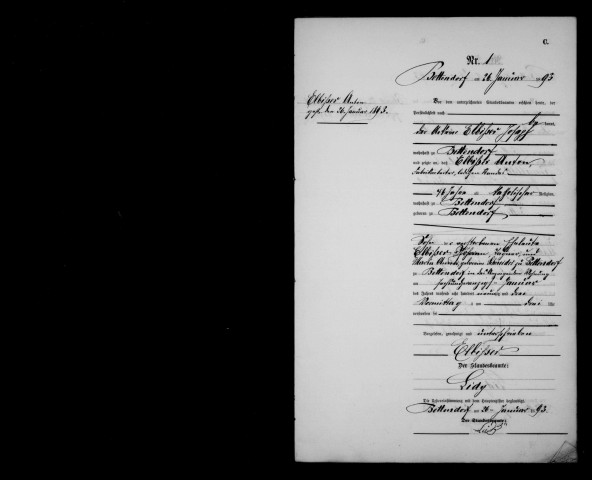 C.
Nr. 1
Bettendorf am 26 Januar 1893
Elbisser Anton
gest. den 26. Januar 1893.
Vor dem unterzeichneten Standesbeamten erschien heute, der
Persönlichkeit nach
kannt,
der Rentner Elbisser Joseph
wohnhaft zu Bettendorf
und zeigte an, daß Elbisser Anton,
Fabrikarbeiter, ledigen Standes
76 Jahre alt, katholischer Religion,
wohnhaft zu Bettendorf
geboren zu Bettendorf
Sohn der verstorbenen Eheleute
Elbisser Johann, und
zu Bettendorf
zu Bettendorf in der Wohnung
am sechsundzwanzigsten Januar
des Jahres tausend acht hundert neunzig und drei
Vormittags um drei Uhr
verstorben sei
Vorgelesen, genehmigt und unterschrieben
Elbisser
Der Standesbeamte:
Lidy
Die Uebereinstimmung mit dem Hauptregister beglaubigt.
Bettendorf am 26 Januar 1893.
Der Standesbeamte:
Lidy